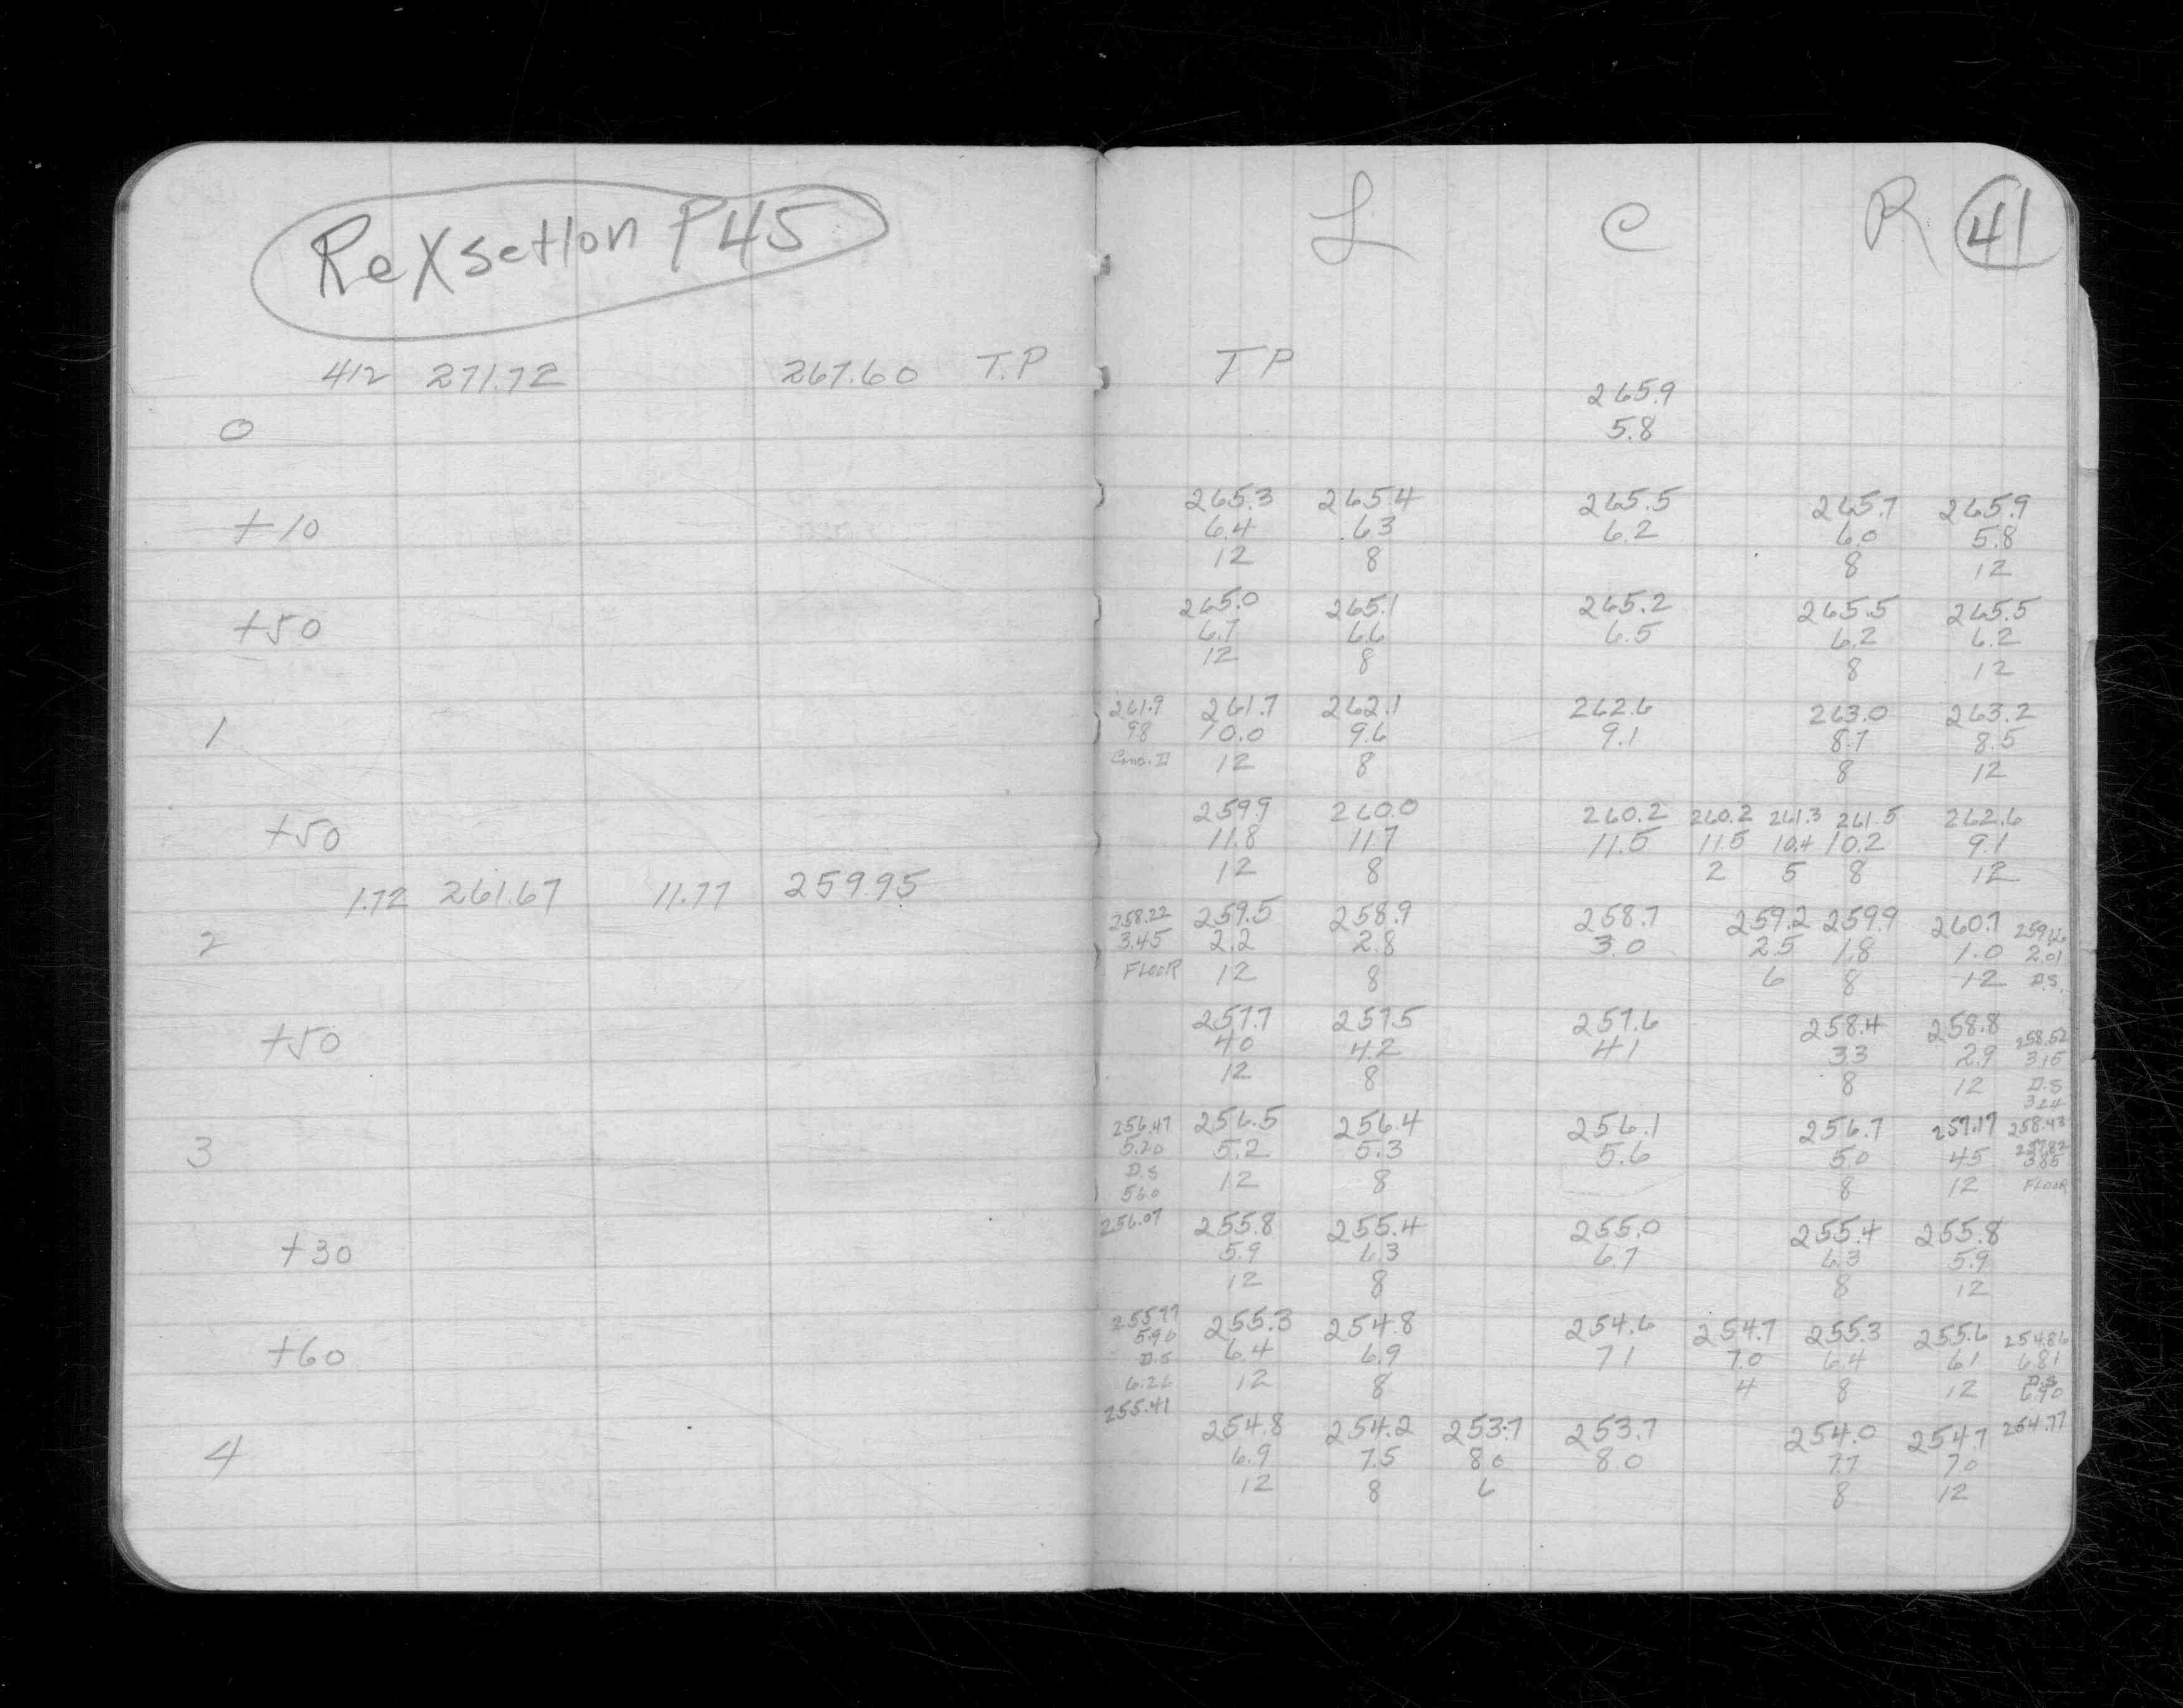 ReXsetIon P45
L C R 41
412 271.72 267.60 T.P TP
265.9
0 5.8
265.3 265.4 265.5 265.7 265.9
+10 6.4 6.3 6.2 6.0 5.8
12 8 8 12
265.0 265.1 265.2 265.5 265.5
+50 6.7 6.6 6.5 6.2 6.2
12 8 8 12
261.9 261.7 262.1 262.6 263.0 263.2
1 9.8 10.0 9.6 9.1 8.7 8.5
12 8 8 12
259.9 260.0 260.2 260.2 261.3 261.5 262.6
+50 11.8 11.7 11.5 11.5 10.4 10.2 9.1
12 8 2 5 8 12
1.72 261.67 11.77 259.95
258.22 259.5 258.9 258.7 259.2 259.9 260.7 259.66
2 3.45 2.2 2.8 3.0 2.5 1.8 1.0 2.01
FLOOR 12 8 6 8 12 D.S.
257.7 257.5 257.6 258.4 258.8 258.52
+50 4.0 4.2 4.1 3.3 2.9 3.15
12 8 8 12 D.S
3.24
256.47 256.5 256.4 256.1 256.7 257.17 258.43
257.82
3 5.20 5.2 5.3 5.6 5.0 4.5 3.85
D.S 12 8 8 12 FLOOR
5.60
256.07 255.8 255.4 255.0 255.4 255.8
+30 5.9 6.3 6.7 6.3 5.9
12 8 8 12
255.77 255.3 254.8 254.6 254.7 255.3 255.6 254.86
+60 5.90 6.4 6.9 7.1 7.0 6.4 6.1 6.81
D.S 12 8 4 8 12 D.S
6.26 6.90
255.41 254.8 254.2 253.7 253.7 254.0 254.7 254.77
4 6.9 7.5 8.0 8.0 7.7 7.0
12 8 6 8 12